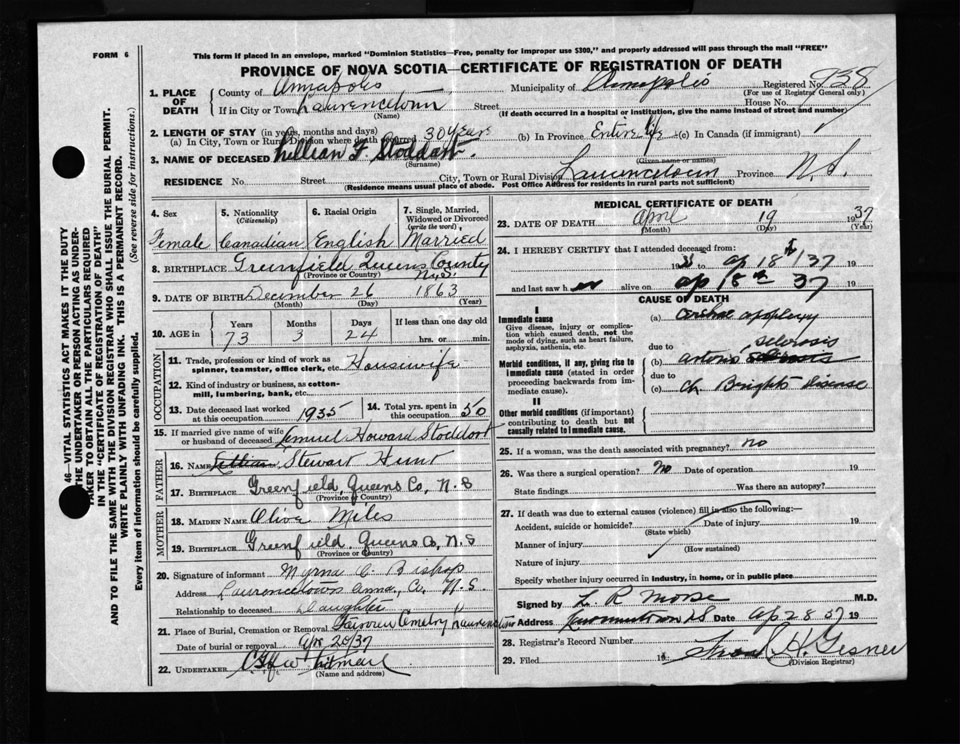 FORM 6
This form if placed in an envelope, marked "Dominion Statistics—Free, penalty for improper use $300," and properly addressed will pass through the mail "FREE"
PROVINCE OF NOVA SCOTIA—CERTIFICATE OF REGISTRATION OF DEATH
1. PLACE OF DEATH County of Annapolis Municipality of Annapolis Registered No. 938
(For use of Registrar General only)
If in City or Town Laurencetown Street House No.
(Name) (If death occurred in hospital or institution, give the name instead of street and number)
2. LENGTH OF STAY (in years, months and days)
(a) In City, Town or Rural Division where death occurred 30 years (b) In Province Entire life (c) In Canada (if immigrant)
3. NAME OF DECEASED Lillian F. Stoddart.
(Surname) (Given name or names)
RESIDENCE No. Street City, Town or Rural Division Laurencetown Province N.S.
(Residence means usual place of abode. Post Office Address for residents in rural parts not sufficient)
4. Sex Female
5. Nationality (Citizenship) Canadian
6. Racial Origin English
7. Single, Married, Widowed or Divorced (write the word) Married
8. BIRTHPLACE Greenfield Queens County N.S.
(Province or Country)
9. DATE OF BIRTH December 26 1863
(Month) (Day) (Year)
10. AGE in Years 73 Months 3 Days 24 If less than one day old hrs. or min.
OCCUPATION
11. Trade, profession or kind of work as spinner, teamster, office clerk, etc. Housewife
12. Kind of industry or business, as cotton-mill, lumbering, bank, etc.
13. Date deceased last worked at this occupation 1935 14. Total yrs. spent in this occupation 50
15. If married give name of wife or husband of deceased Lemuel Howard Stoddart
FATHER
16. NAME Stewart Hunt
17. BIRTHPLACE Greenfield, Queens Co, N.S
(Province or Country)
MOTHER
18. MAIDEN NAME Olive Miles
19. BIRTHPLACE Greenfield, Queens Co, N.S
(Province or Country)
20. Signature of informant Myrna C. Bishop
Address Laurencetown Anna. Co. N.S.
Relationship to deceased Daughter
21. Place of Burial, Cremation or Removal Cemetry Laurencetown
Date of burial or removal Apr 20/37
22. UNDERTAKER
(Name and address)
MEDICAL CERTIFICATE OF DEATH
23. DATE OF DEATH April 19 1937
(Month) (Day) (Year)
24. I HEREBY CERTIFY that I attended deceased from:
19 to ap 18th/37 19
and last saw her alive on ap 18th 37 19
CAUSE OF DEATH
I
Immediate cause
Give disease, injury or complication which caused death, not the mode of dying, such as heart failure, asphyxia, asthenia, etc.
(a) Cerebral apoplexy
due to
Morbid conditions, if any, giving rise to immediate cause (stated in order proceeding backwards from immediate cause).
(b) arterio sclerosis
due to
(c) Ch. Brights Disease
II
Other morbid conditions (if important) contributing to death but not causally related to immediate cause.
25. If a woman, was the death associated with pregnancy? no
26. Was there a surgical operation? No Date of operation 19
State findings Was there an autopsy?
27. If death was due to external causes (violence) fill in also the following:—
Accident, suicide or homicide? Date of injury 19
(State which)
Manner of injury
(How sustained)
Nature of injury
Specify whether injury occurred in industry, in home, or in public place
Signed by L R Morse M.D.
Address Date ap 28 37 19
28. Registrar's Record Number
29. Filed 19 H. Gesner
(Division Registrar)
46—VITAL STATISTICS ACT MAKES IT THE DUTY
OF THE UNDERTAKER OR PERSON ACTING AS UNDER-
TAKER TO OBTAIN ALL THE PARTICULARS REQUIRED
IN THE "CERTIFICATE OF REGISTRATION OF DEATH"
AND TO FILE THE SAME WITH THE DIVISION REGISTRAR WHO SHALL ISSUE THE BURIAL PERMIT.
WRITE PLAINLY WITH UNFADING INK. THIS IS A PERMANENT RECORD.
Every item of information should be carefully supplied. (See reverse side for instructions.)